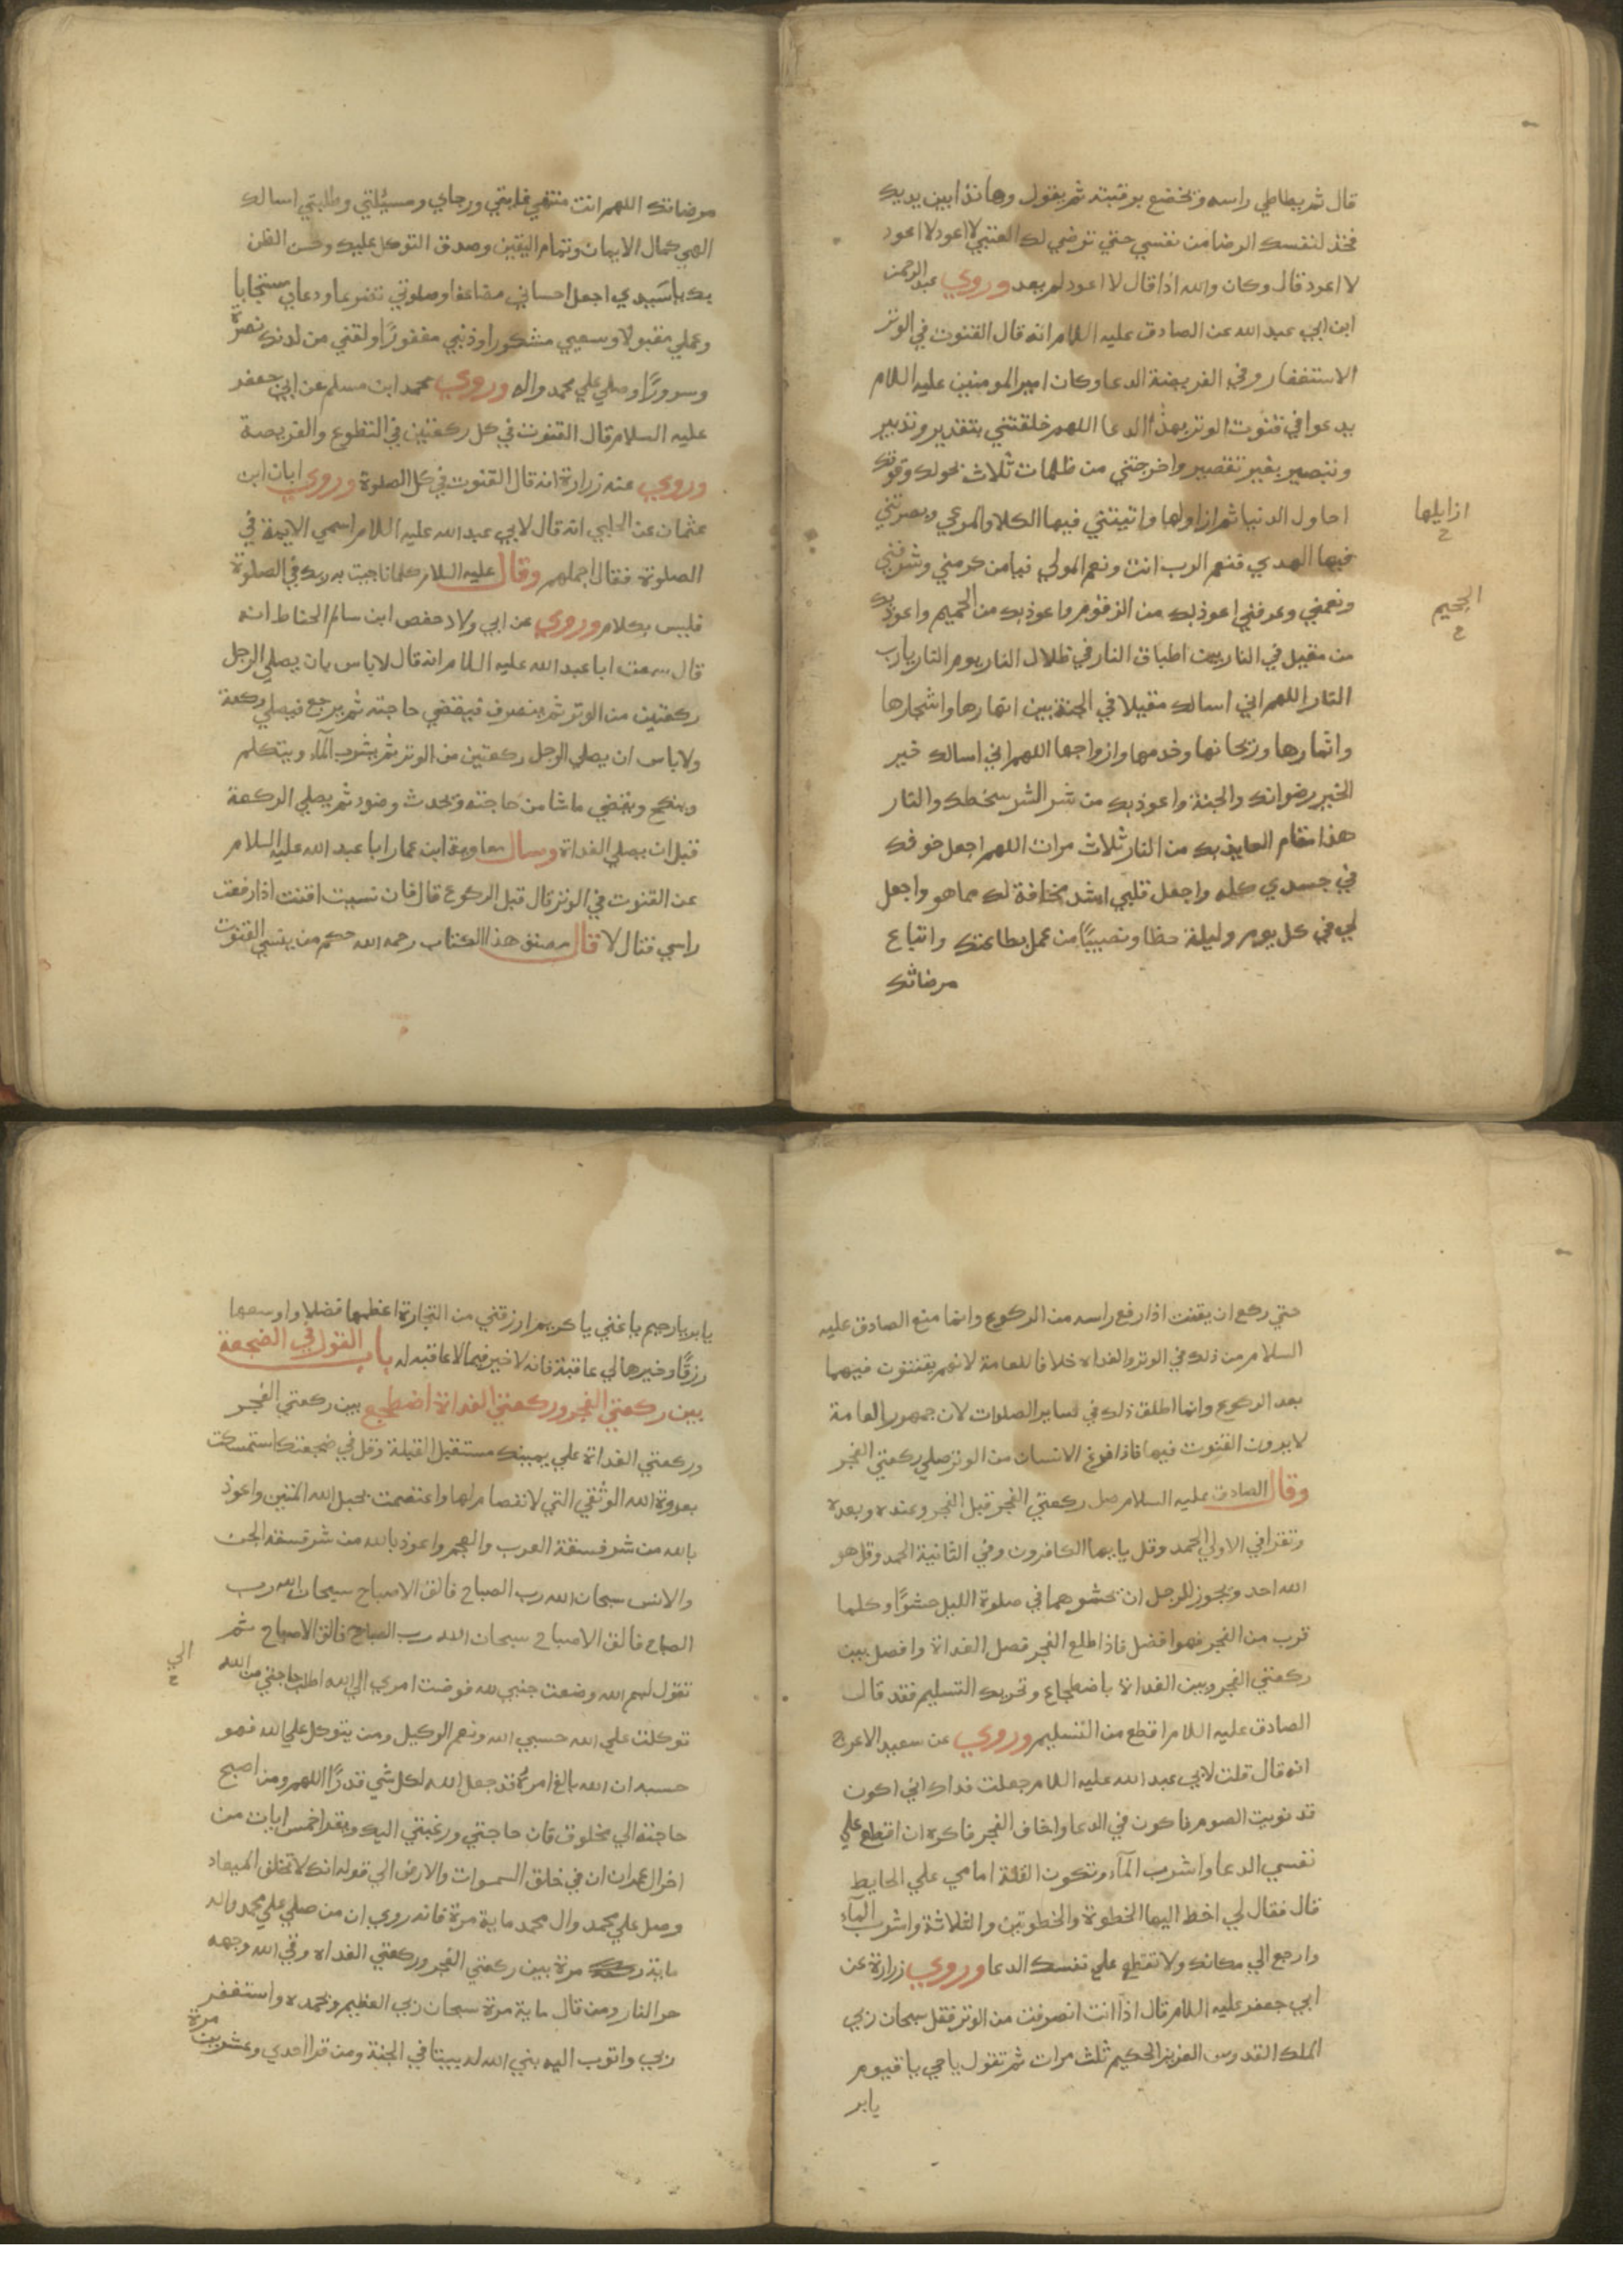 قال ثم يطاطي راسه وتخضع برقبته ثم يقول وهانذا بين يديك
فخذ لنفسك الرضا من نفسي حتي ترضي لك العتبي لا اعود لا اعود
لا اعود قال وكان والله اذا قال لا اعود لم يعد وروي عبد الرحمن
ابن ابي عبد الله عن الصادق عليه السلام انه قال القنوت في الوتر
الاستغفار وفي الفريضة الدعا وكان امير المومنين عليه السلام
يدعوا في قنوت الوتر بهذا الدعا اللهم خلقتني بتقدير وتدبير
وتبصير بغير تقصير واخرجتني من ظلمات ثلاث بحولك وقوتك
احاول الدنيا ثم ازاولها واتيتني فيها الكلا والمرعي وبصرتني
ازايلها
ح
فيها الهدي فنعم الرب انت ونعم المولي فيامن كرمني وشرفني
ونعمني وعرفني اعوذ بك من الزقوم واعوذ بك من الحميم واعوذ بك
الجحيم
ح
من مقيل في النار بين اطباق النار في ظلال النار يوم النار يارب
النار اللهم اني اسالك مقيلا في الجنة بين انهارها واشجارها
واثمارها وريحانها وخدمها وازواجها اللهم اني اسالك خير
الخير رضوانك والجنة واعوذ بك من شر الشر سخطك والنار
هذا مقام العايذ بك من النار ثلاث مرات اللهم اجعل خوفك
في جسدي كله واجعل قلبي اشد مخافة لك مما هو واجعل
لي في كل يوم وليلة حظا ونصيبًا من عمل بطاعتك واتباع
مرضاتك
مرضاتك اللهم انت منتهي غايتي ورجاي ومسئلتي وطلبتي اسالك
الهي كمال الايمان وتمام اليقين وصدق التوكل عليك وحسن الظن
بك ياسيدي اجعل احساني مضاعفا وصلوتي تضرعا ودعاي مستجابا
وعملي مقبولا وسعيي مشكورا وذنبي مغفورًا ولقني من لدنك نضرةً
وسرورًا وصلي علي محمد واله وروي محمد ابن مسلم عن ابي جعفر
عليه السلام قال القنوت في كل ركعتين في التطوع والفريضة
وروي عنه زرارة انه قال القنوت في كل الصلوة وروي ابان ابن
عثمان عن الحلبي انه قال لابي عبد الله عليه السلام اسمي الايمة في
الصلوة فقال اجملهم وقال عليه السلام كلما ناجيت به ربك في الصلوة
فليس بكلام وروي عن ابي ولاد حفص ابن سالم الحناط انه
قال سمعت ابا عبد الله عليه السلام انه قال لاباس بان يصلي الرجل
ركعتين من الوتر ثم ينصرف فيقضي حاجته ثم يرجع فيصلي ركعة
ولاباس ان يصلي الرجل ركعتين من الوتر ثم يشرب المآء ويتكلم
وينكح ويقضي ماشا من حاجته ويحدث وضوء ثم يصلي الركعة
قبل ان يصلي الغداة وسال معاوية ابن عمار ابا عبد الله عليه السلام
عن القنوت في الوتر قال قبل الركوع قال فان نسيت اقنت اذا رفعت
راسي فقال لا قال مصنف هذا الكتاب رحمه الله حكم من ينسي القنوت
حتي ركع ان يقنت اذا رفع راسه من الركوع وانما منع الصادق عليه
السلام من ذلك في الوتر والغداه خلافا للعامة لانهم يقنتوت فيهما
بعد الركوع وانما اطلق ذلك في ساير الصلوات لان جمهور العامة
لايرون القنوت فيها فاذا فرغ الانسان من الوتر صلي ركعتي الفجر
وقال الصادق عليه السلام صل ركعتي الفجر قبل الفجر وعنده وبعده
وتقرا في الاولي الحمد وقل يايها الكافرون وفي الثانية الحمد وقل هو
الله احد ويجوز للرجل ان يحشوهما في صلوة الليل حشوًا وكلما
قرب من الفجر فهو افضل فاذا طلع الفجر فصل الغداة وافصل بين
ركعتي الفجر وبين الغداة باضطجاع وتحريك التسليم فقد قال
الصادق عليه السلام اقطع من التسليم وروي عن سعيد الاعرج
انه قال قلت لابي عبد الله عليه السلام جعلت فداك اني اكون
قد نويت الصوم فاكون في الدعا واخاف الفجر فاكره ان اقطع علي
نفسي الدعا واشرب المآء وتكون القلة امامي علي الحايط
قال فقال لي اخط اليها الخطوة والخطوتين والثلاثة واشرب المآء
وارجع الي مكانك ولا تقطع علي نفسك الدعا وروي زرارة عن
ابي جعفر عليه السلام قال اذا انت انصرفت من الوتر فقل سبحان ربي
الملك القدوس العزيز الحكيم ثلث مرات ثم تقول ياحي ياقيوم
يابر
يابر يارحيم ياغني ياكريم ارزقني من التجارة اعظمها فضلا واوسعها
رزقًا وخيرها لي عاقبة فانه لاخير فيما لا عاقبه له باب القول في الضجعة
بين ركعتي الفجر وركعتي الغداة اضطجع بين ركعتي الفجر
وركعتي الغداة علي يمينك مستقبل القبلة وقل في ضجعتك استمسكت
بعروة الله الوثقي التي لا نفصام لها واعتصمت بحبل الله المتين واعوذ
بالله من شر فسقة العرب والعجم واعوذ بالله من شر فسقة الجن
والانس سبحان الله رب الصباح فالق الاصباح سبحان الله رب
الصباح فالق الاصباح سبحان الله رب الصباح فالق الاصباح ثم
تقول بسم الله وضعت جنبي لله فوضت امري الي الله اطلب حاجتي من الله
الي
ح
توكلت علي الله حسبي الله ونعم الوكيل ومن يتوكل علي الله فهو
حسبه ان الله بالغ امره قد جعل الله لكل شي قدرًا اللهم ومن اصبح
حاجته الي مخلوق فان حاجتي ورغبتي اليك ويقرا خمس ايات من
اخر ال عمران ان في خلق السموات والارض الي قوله انك لا تخلف الميعاد
وصل علي محمد وال محمد ماية مرة فانه روي ان من صلي علي محمد واله
ماية مرة بين ركعتي الفجر وركعتي الغداه وقي الله وجهه
حر النار ومن قال ماية مرة سبحان ربي العظيم وبحمده واستغفر
ربي واتوب اليه بني الله له بيتا في الجنة ومن قرا احدي وعشرين مرة